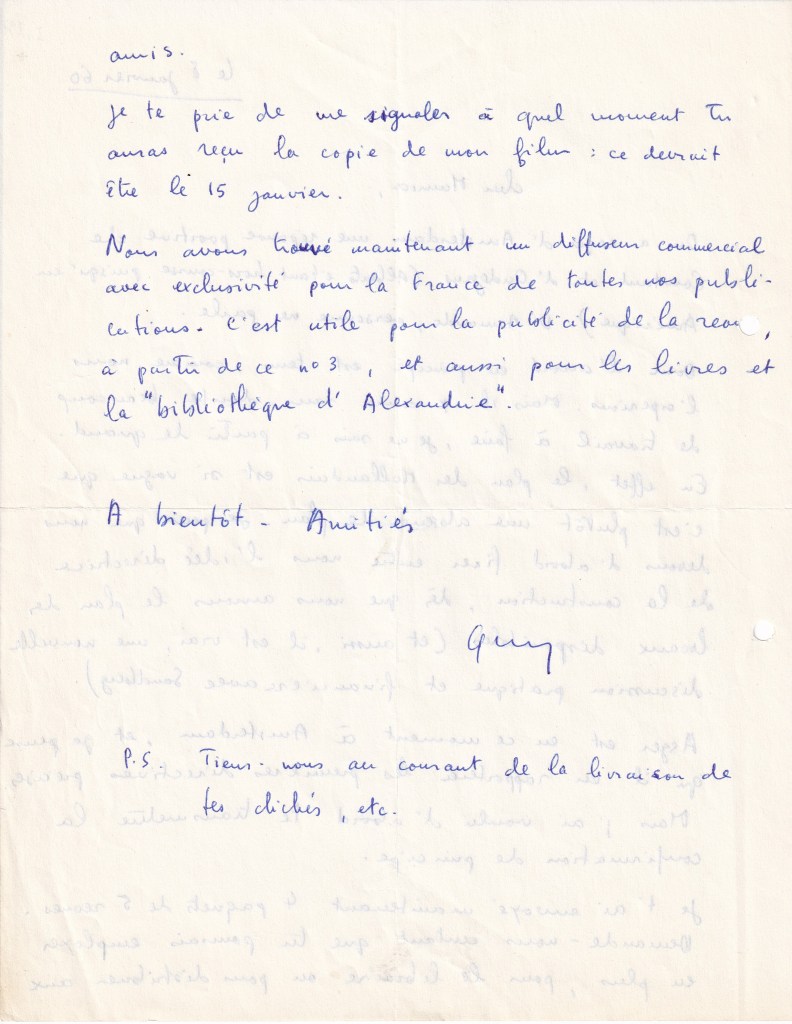 amis.
Je te prie de me signaler à quel moment Tu
auras reçu la copie de mon film : ce devrait
être le 15 janvier.
Nous avons trouvé maintenant un diffuseur commercial
avec exclusivité pour la France de toutes nos publi-
cations. C'est utile pour la publicité de la revu ,
à partir de ce n° 3, et aussi pour les livres et
la "bibliothèque d'Alexandrie".
A bientôt - Amitiés
Guy
P.S. Tiens-nous au courant de la livraison de
tes clichés, etc.